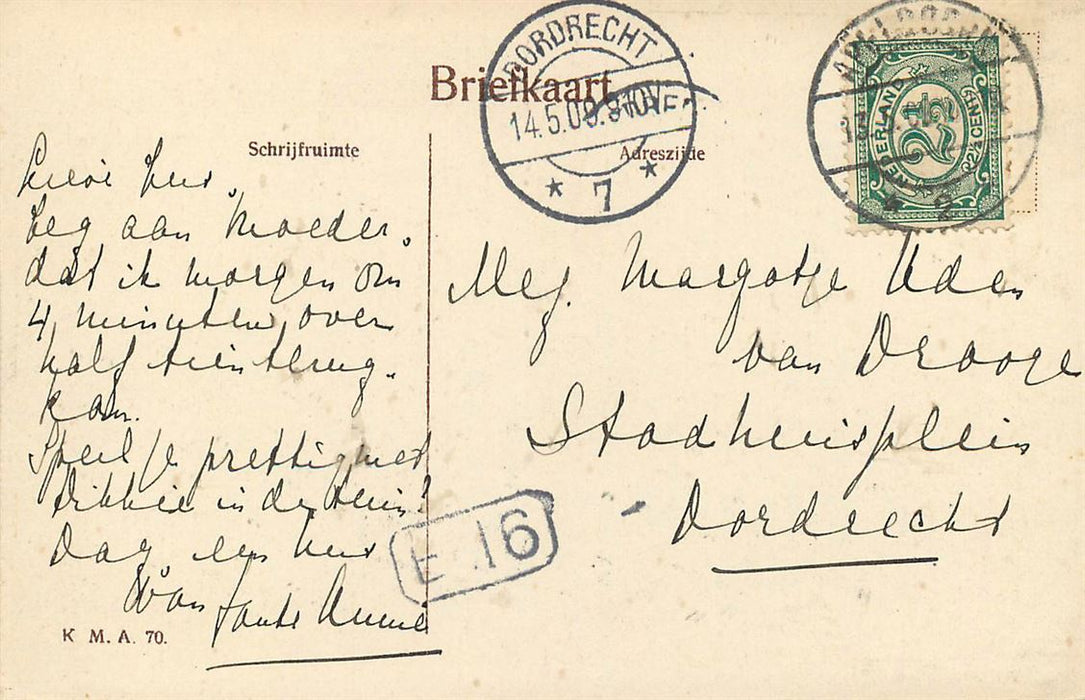 Briefkaart
DORDRECHT
14.5.09.9-10V
* 7 *
NEDERLAND
2½
2½ CENT
2
Schrijfruimte
Adreszijde
Lieve
Zeg aan Moeder,
dat ik morgen om
4 minuten over
half tien terug
kom.
Speel je prettig met
Dikkie in de tuin?
Dag, een kus
van Tante Annie
Mej. Margotje Uden
van Drooge
Stadhuisplein
Dordrecht
E 16
K. M. A. 70.